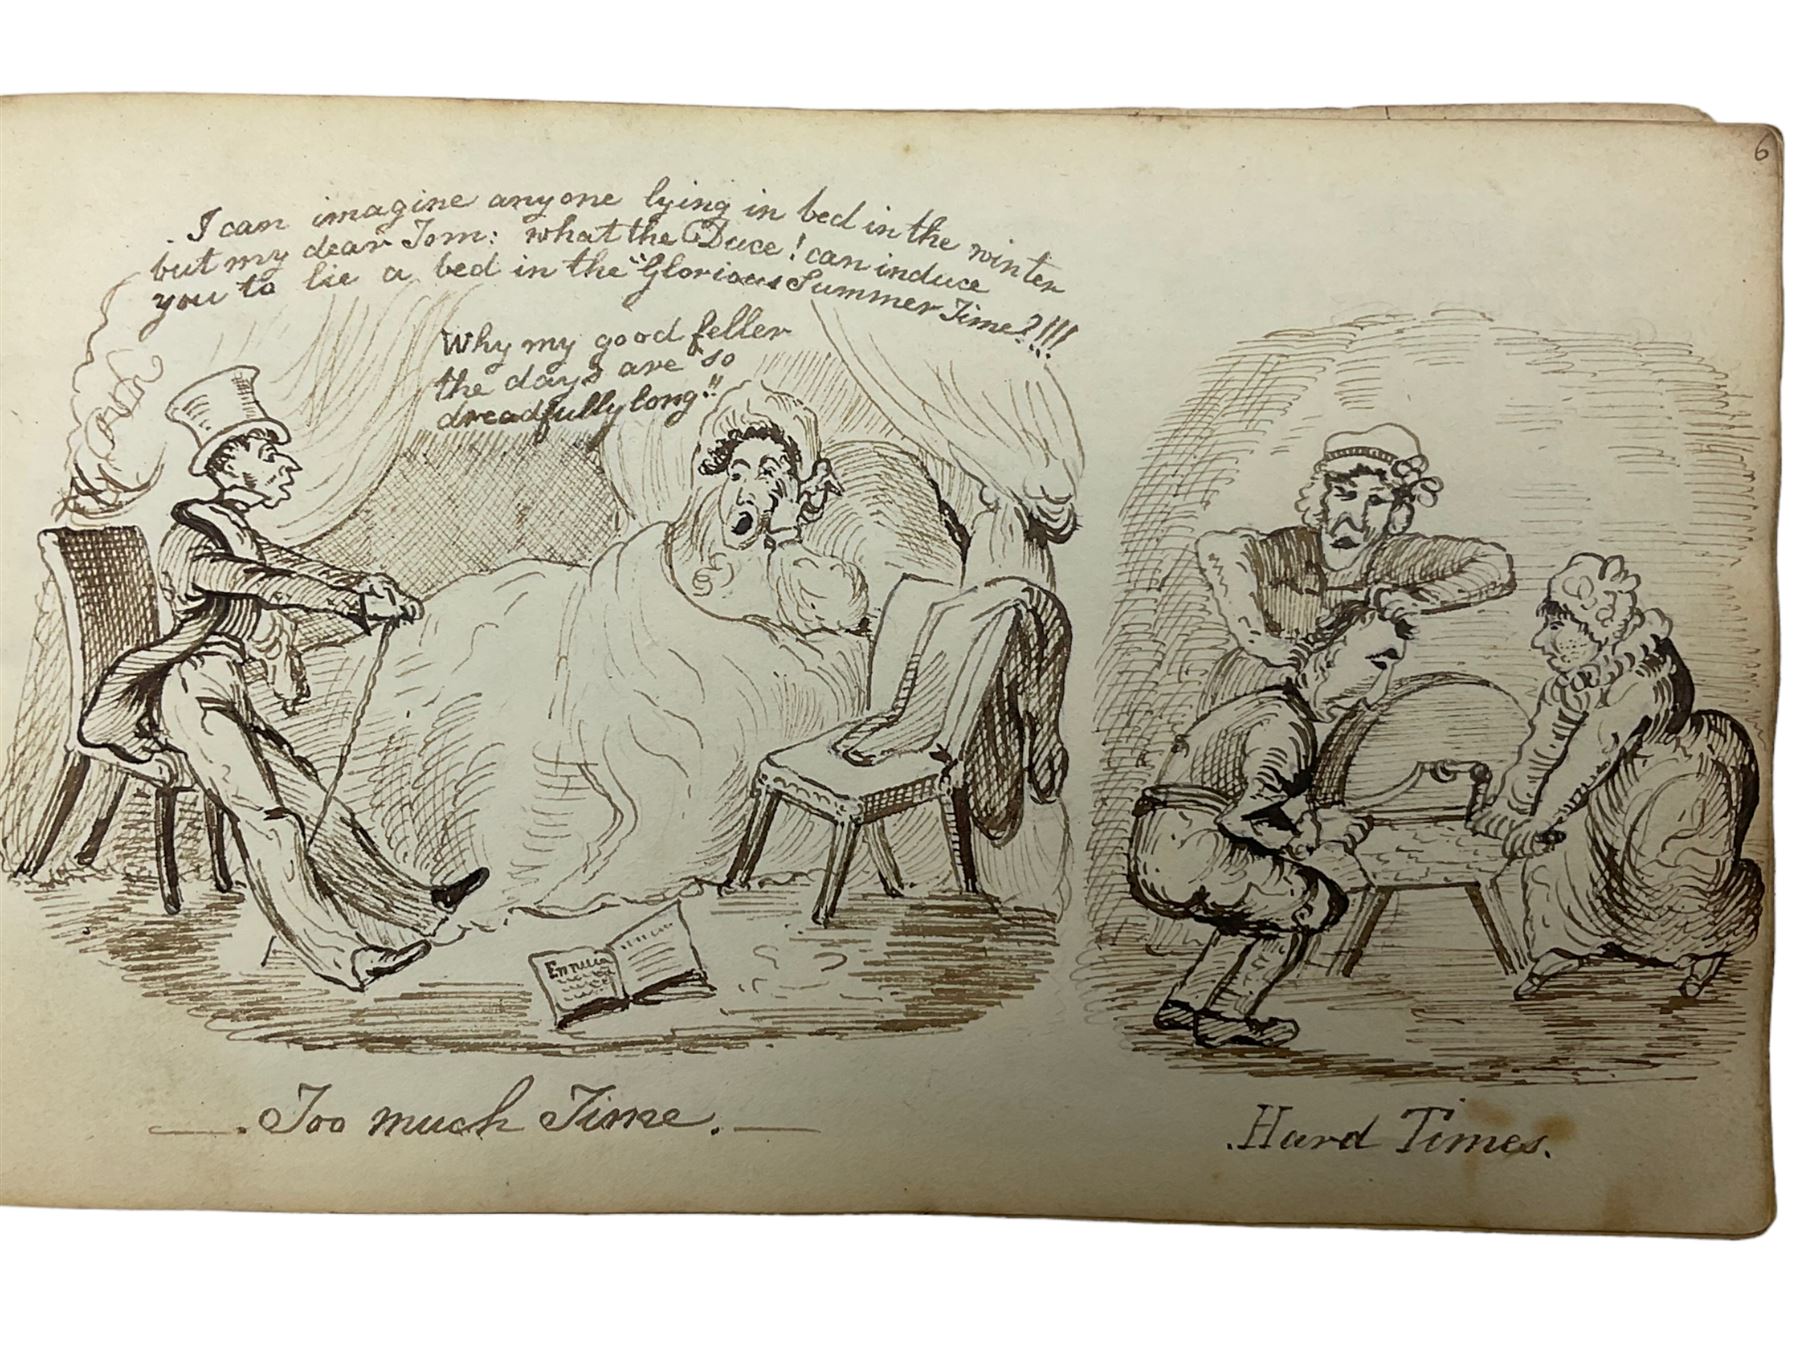 6
I can imagine anyone lying in bed in the winter
but my dear Tom: what the Duce! can induce
you to lie a bed in the "Glorious Summer Time?!!!
Why my good feller
the days are so
dreadfully long"!!
Ennuia
Too much Time.
Hard Times.